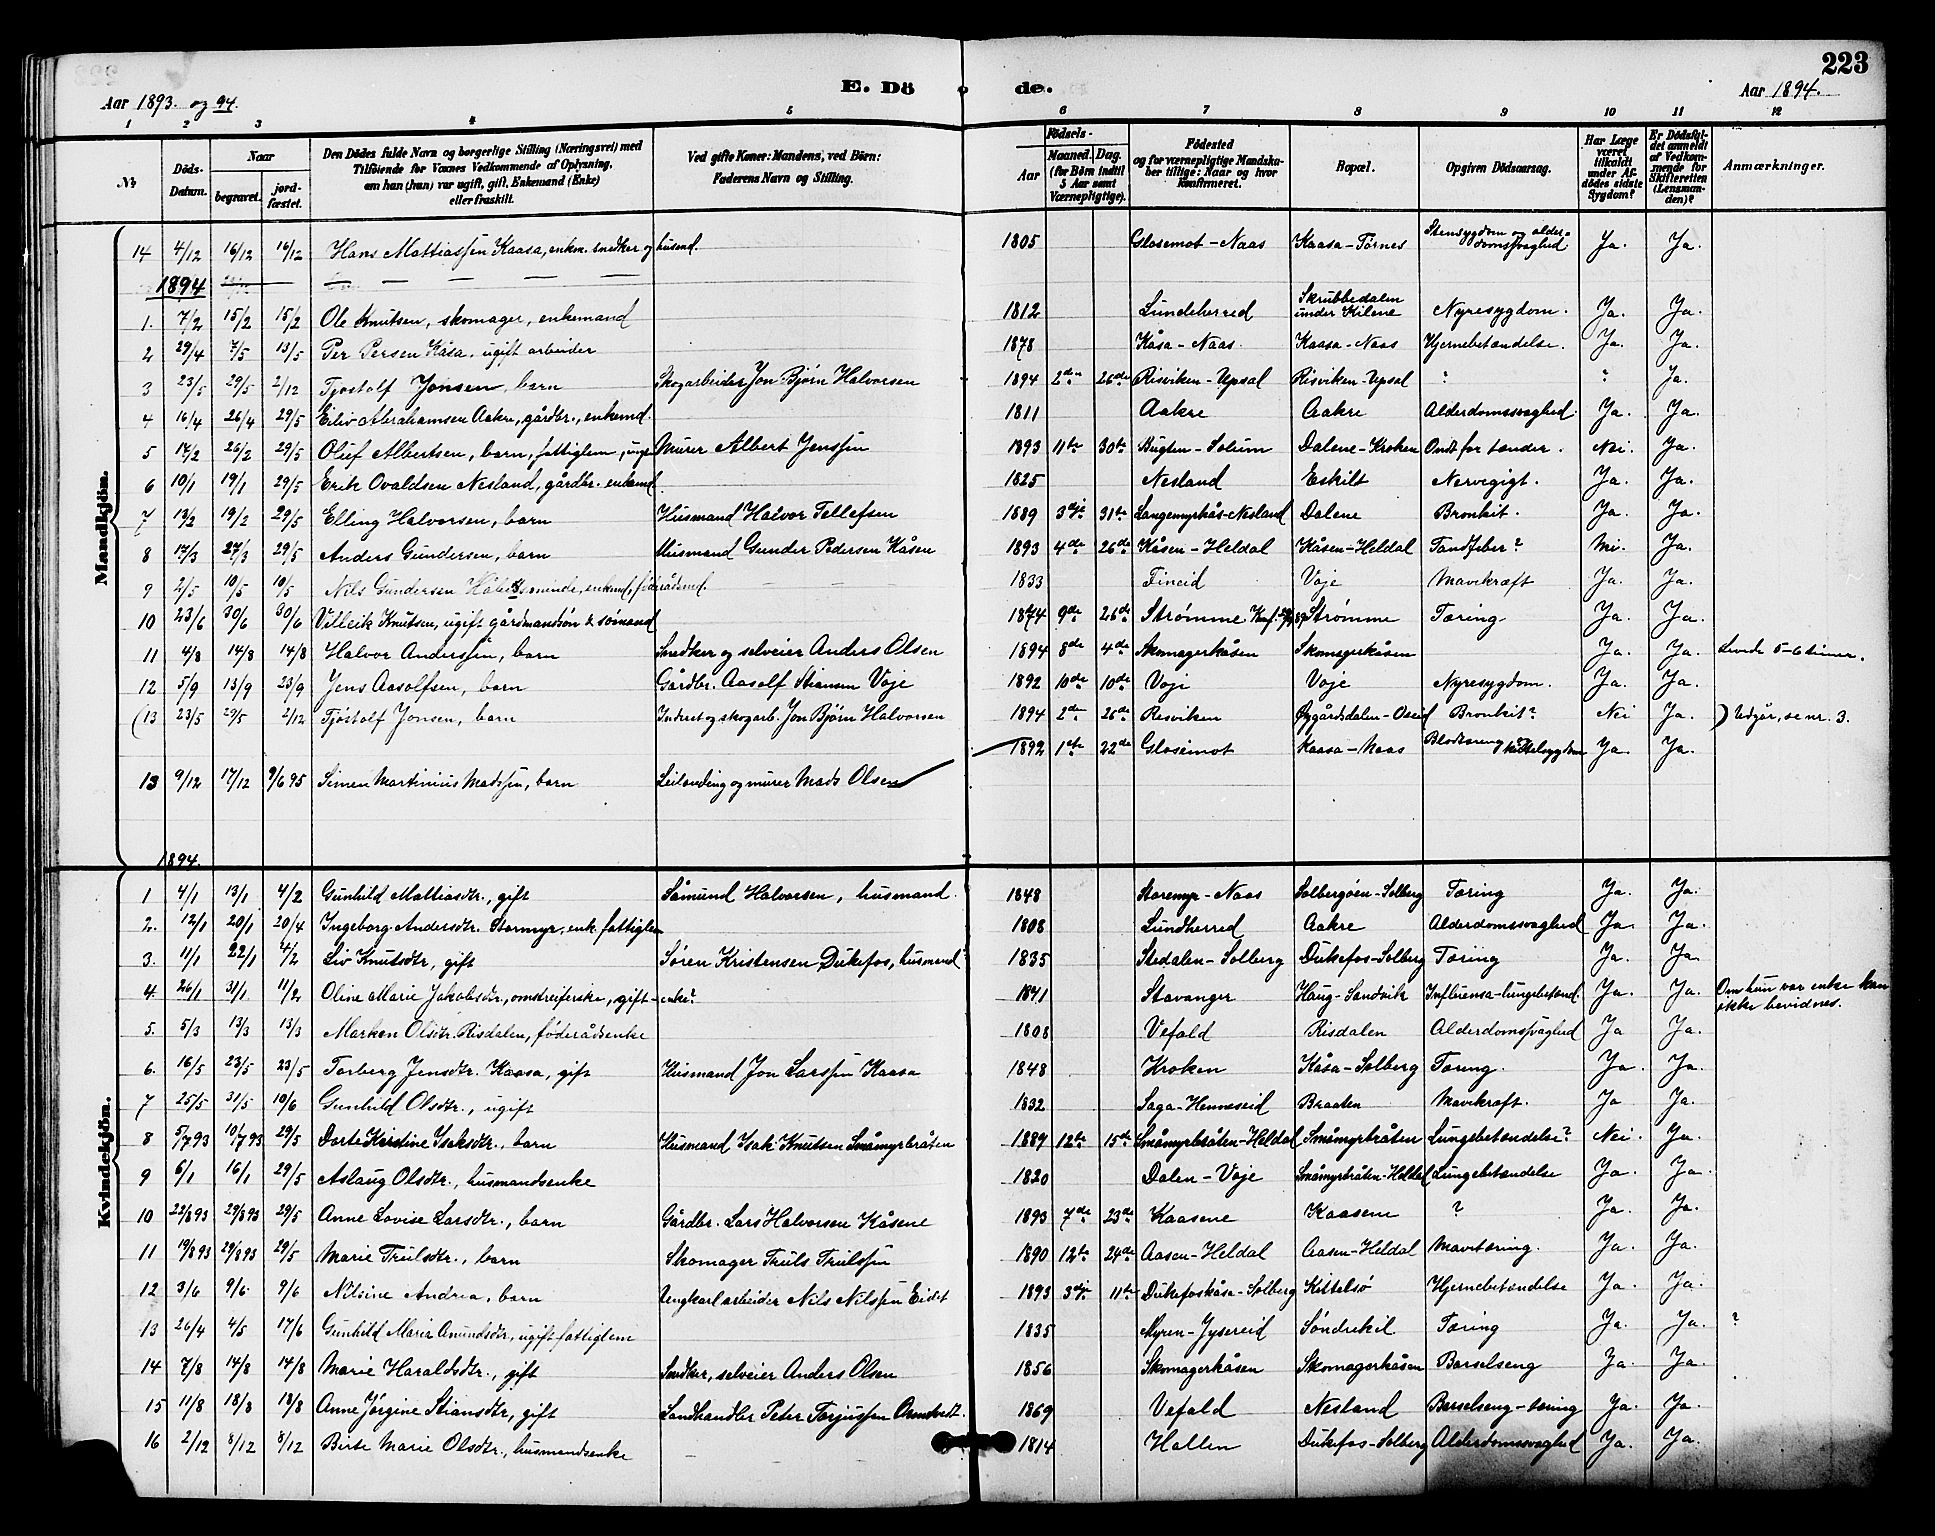 223
E. Dö de.
Aar 1893. og 94. Aar 1894.
1 2 3 4 5 6 7 8 9 10 11 12
No Döds-Datum. Naar begravet. jord-fæstet. Den Dödes fulde Navn og borgerlige Stilling (Næringsvei) med Tilföiende for Voxnes Vedkommende af Oplysning, om han (hun) var ugift, gift, Enkemand (Enke) eller fraskilt. Ved gifte Koner: Mandens, ved Börn: Faderens Navn og Stilling. Födsels- Aar Maaned. Dag. (for Börn indtil 5 Aar samt Værnepligtige). Födested og for værnepligtige Mandskaber tillige: Naar og hvor konfirmeret. Bopæl. Opgiven Dödsaarsag. Har Læge været tilkaldt under Afdödes sidste Sygdom? Er Dödsfaldet anmeldt af Vedkommende for Skifteretten (Lensmanden)? Anmærkninger.
Mandkjön.
14 4/12 16/12 16/12 Hans Mattiassen Kaasa, enkm. snedker og husmd. 1805 Glosemot - Naas Kaasa - Tørnes Stensygdom og alderdomssvaghed Ja. Ja.
1894
1. 7/2 15/2 15/2 Ole Knutsen, skomager, enkemand 1812 Lundeherred Skrubbedalen under Kilene Nyresygdom. Ja. Ja.
2 29/4 7/5 13/5 Per Persen Kåsa, ugift arbeider 1878 Kåsa - Naas. Kaasa - Naas Hjernebetændelse. Ja. Ja.
3 23/5 29/5 2/12 Tjøstolf Jonsen, barn Skogarbeider Jon Bjørn Halvorsen 1894 2den 26de Risviken - Upsal Risviken - Upsal ? ? Ja.
4 16/4 26/4 29/5 Eiliv Abrahamsen Aakre, gårdbr., enkemd. 1811 Aakre Aakre Alderdomssvaghed. Ja. Ja.
5 17/2 26/2 29/5 Oluf Albertsen, barn, fattiglem, Murer Albert Jenssen 1893 11te 30te Bugten - Solum Dalene - Kroken Ondt for tænder. Nei. Ja.
6 10/1 19/1 29/5 Erik Ovaldsen Nesland, gårdbr. enkemd. 1825 Nesland Eskilt Nervegigt. Ja. Ja.
7 13/2 19/2 29/5 Elling Halvorsen, barn Husmand Halvor Tellefsen 1889 3dje 31te Langemyrkås - Nesland Dalene Bronkit. Ja. Ja.
8 17/3 27/3 29/5 Anders Gundersen, barn Husmand Gunder Pedersen Kåsen 1893 4de 26de Kåsen - Heldal Kåsen - Heldal Tandfeber? Nei. Ja.
9 2/5 10/5 10/5 Nils Gundersen enkemd, føderådsmd. 1833 Fineid Voje Mavekræft Ja. Ja.
10 23/6 30/6 30/6 Villeik Knutsen, ugift gårdmandsön & sömand 1874 9de 26de Strømme. Konf. Strømme Tæring Ja. Ja.
11 4/8 14/8 14/8 Halvor Anderssen, barn Snedker og selveier Anders Olsen 1894 8de 4de Skomagerkåsen Skomagerkåsen Ja. Ja. Levde 5-6 timer.
12 5/9 13/9 23/9 Jens Aasolfsen, barn Gårdbr. Aasolf Stiansen Voje 1892 10de 10de Voje Voje Nyresygdom. Ja. Ja.
(13 23/5 29/5 2/12 Tjöstolf Jonsen, barn Inderst og skogarb. Jon Bjørn Halvorsen 1894 2den 26de Resviken Øygårdsdalen - Oseid Bronkit? Nei Ja. ) Udgår, se nr. 3.
13 9/12 17/12 9/6 95 Simen Martinius Madssen, barn Leilending og murer Mads Olsen 1892 1ste 22de Glosimot Kaasa - Naas Ja. Ja.
1894.
Kvindekjön.
1 4/1 13/1 4/2 Gunhild Mattiasdtr., gift Såmund Halvorsen, husmand. 1848 Storemyr - Naas Solbergöen - Solberg Tæring Ja. Ja.
2. 12/1 20/1 20/4 Ingeborg Andersdtr. Stormyr, enk. fattiglem 1808 Lundherred Aakre Alderdomssvaghed Ja. Ja.
3. 11/1 22/1 4/2 Liv Knutsdtr, gift Søren Kristensen Dukefos, husmand 1835 Stedalen - Solberg Dukefos - Solberg Tæring Ja. Ja.
4. 26/1 31/1 11/2 Oline Marie Jakobsdtr., omstreiferske, gift - enke? 1841 Stavanger Haug - Sandvik Influensa - lungebetænd. Ja. Ja. Om hun var enke kan ikke bevidnes.
5. 5/3 13/3 13/3 Marken Olsdtr. Risdalen, føderådsenke 1808 Vefald Risdalen Alderdomssvaghed Ja Ja.
6. 16/5 23/5 23/5 Torberg Jensdtr. Kaasa, gift Husmand Jon Larssen Kaasa 1848 Kroken Kåsa - Solberg Tæring. Ja. Ja.
7 25/5 31/5 10/6 Gunhild Olsdtr., ugift 1832 Saga - Henneseid Braaten Mavekræft. Ja Ja.
8 5/7 93 10/7 93 29/5 Dorte Kirstine Isaksdtr., barn Husmand Isak Knutsen Småmyrbråten 1889 12te 15de Småmyrbråten - Heldal Småmyrbråten Lungebetændelse? Nei. Ja.
9 6/1 16/1 29/5 Aslaug Olsdtr., husmandsenke 1820 Dalen - Voje Småmyrbråten - Heldal Lungebetændelse Ja. Ja.
10 22/8 93 29/8 93 29/5 Anne Lovise Larsdtr., barn Gårdbr. Lars Halvorsen Kåsene 1893 7de 23de Kaasene Kaasene ? Ja. Ja.
11 19/8 93 29/8 93 29/5 Marie Trulsdtr., barn Skomager Truls Trulssen 1890 12te 24de Aasen - Heldal Aasen - Heldal Mavetæring. Ja. Ja.
12 3/6 9/6. 9/6 Nilsine Andrea, barn Jengkarlarbeider Nils Nilssen Eidet 1893 3dje 11te Dukefoskåsa - Solberg Kittelsø Hjernebetændelse Ja. Ja.
13 26/4 4/5 17/6 Gunhild Maria Amundsdtr., ugift fattiglem 1835 Myren - Jysereid Søndrekil Tæring Ja. Ja. ?
14 7/8 14/8 14/8 Marie Haraldsdtr., gift Snedker, selveier Anders Olsen 1856 Skomagerkåsen Skomagerkåsen Barselseng Ja. Ja.
15 11/8 18/8 18/8 Anne Jørgine Stiansdtr, gift Landhandler Peter Torjussen 1869 Vefald Nesland Barselseng - tæring Ja. Ja.
16 2/12 8/12 8/12 Birte Marie Olsdtr., husmandsenke - 1814 Hallen Dukefos - Solberg Alderdomssvaghed Ja. Ja.